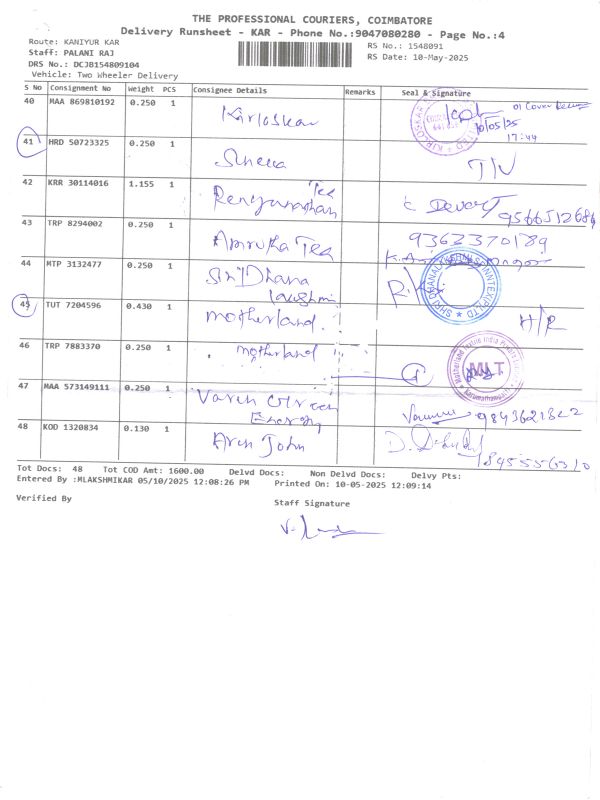 THE PROFESSIONAL COURIERS, COIMBATORE
Delivery Runsheet - KAR - Phone No.:9047080280 - Page No.:4
Route: KANIYUR KAR
RS No.: 1548091
Staff: PALANI RAJ
RS Date: 10-May-2025
DRS No.: DCJB154809104
Vehicle: Two Wheeler Delivery
S No Consignment No Weight PCS Consignee Details Remarks Seal & Signature
40 MAA 869810192 0.250 1 Kirloskar 10/05/25 17:44
41 HRD 50723325 0.250 1
42 KRR 30114016 1.155 1 Tex 9566512686
43 TRP 8294002 0.250 1 Amruka Tex 9362370189
44 MTP 3132477 0.250 1 Sri Dhana Lakshmi
45 TUT 7204596 0.430 1 Motherland H/R
46 TRP 7883370 0.250 1 Motherland MLT
47 MAA 573149111 0.250 1 Varen Green Energy 9843621322
48 KOD 1320834 0.130 1 Arun John
Tot Docs: 48 Tot COD Amt: 1600.00 Delvd Docs: Non Delvd Docs: Delvy Pts:
Entered By :MLAKSHMIKAR 05/10/2025 12:08:26 PM Printed On: 10-05-2025 12:09:14
Verified By
Staff Signature